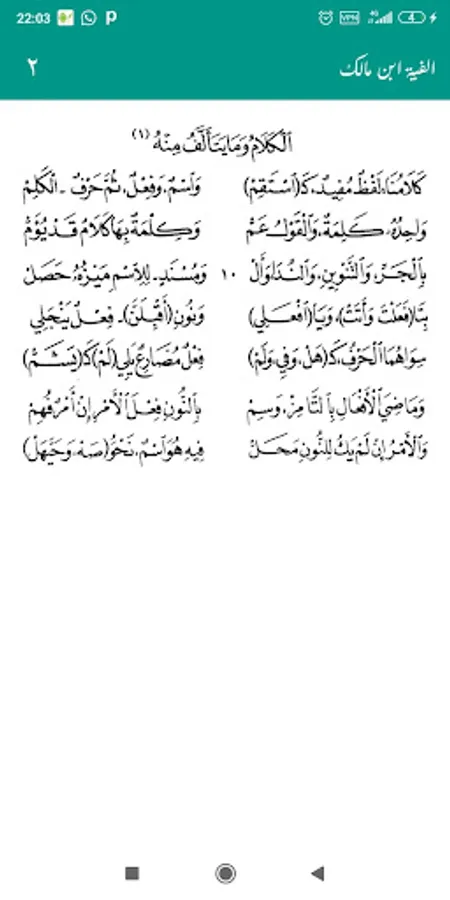 22:03
VPN
4G
4
٢ الفية ابن مالك
اَلْكَلَامُ وَمَا يَتَأَلَّفُ مِنْهُ (١)
كَلَامُنَا: لَفْظٌ مُفِيدٌ، كَـ(اسْتَقِمْ) وَاسْمٌ، وَفِعْلٌ، ثُمَّ حَرْفٌ - الْكَلِمْ
وَاحِدُهُ: كَلِمَةٌ، وَالْقَوْلُ عَمّْ وَكِلْمَةٌ بِهَا كَلَامٌ قَدْ يُؤَمّْ
بِالْجَرِّ، وَالتَّنْوِينِ، وَالنِّدَا، وَأَلْ ١٠ وَمُسْنَدٍ - لِلِاسْمِ مَيْزُهُ حَصَلْ
بِتَا (فَعَلْتَ وَأَتَتْ)، وَيَا (افْعَلِي) وَنُونِ (أَقْبِلَنَّ) - فِعْلٌ يَنْجَلِي
سِوَاهُمَا الْحَرْفُ، كَـ(هَلْ، وَفِي، وَلَمْ) فِعْلٌ مُضَارِعٌ يَلِي (لَمْ) كَـ(يَشَمّْ)
وَمَاضِيَ الْأَفْعَالِ بِالتَّا مِزْ، وَسِمْ بِالنُّونِ فِعْلَ الْأَمْرِ إِنْ أَمْرٌ فُهِمْ
وَالْأَمْرُ إِنْ لَمْ يَكُ لِلنُّونِ مَحَلّْ فِيهِ هُوَ اسْمٌ، نَحْوُ (صَهْ، وَحَيَّهَلْ)